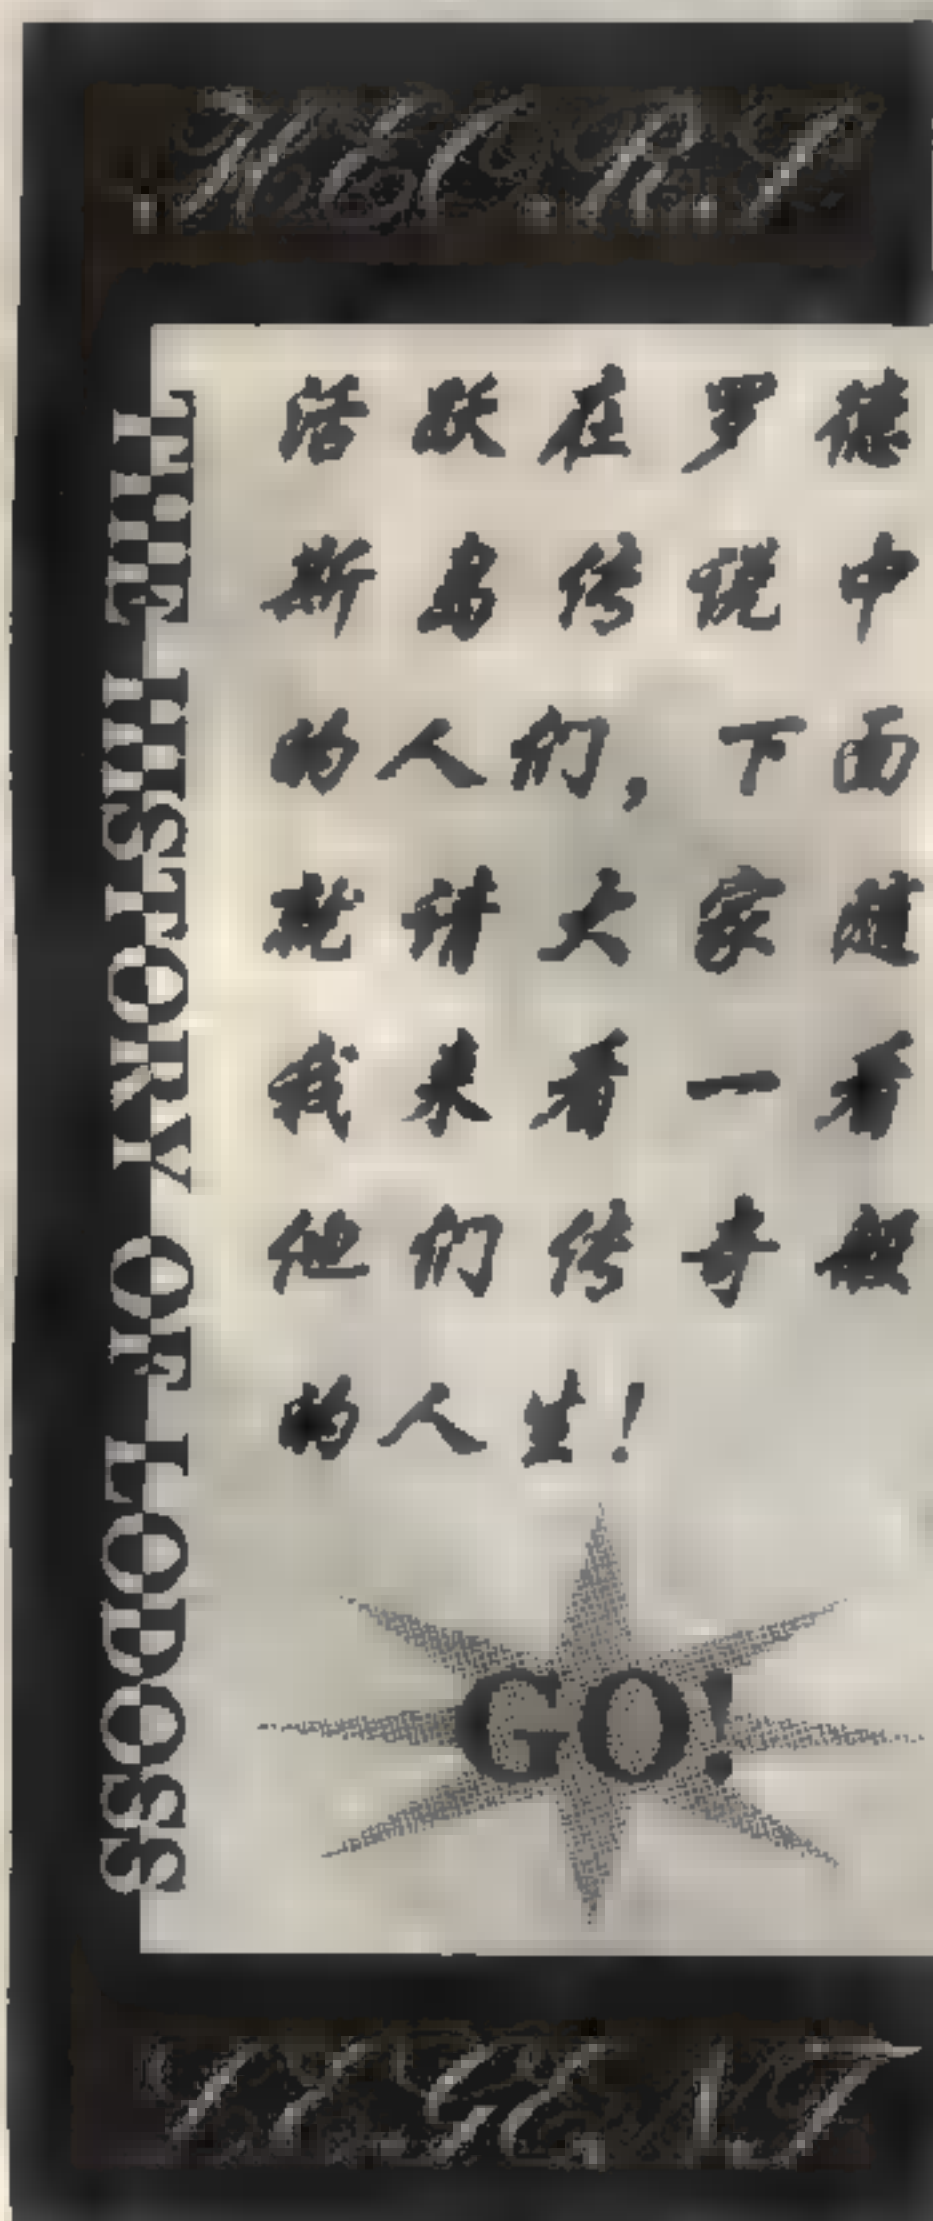 THE HISTORY OF LODOSS
活跃在罗德
斯岛传说中
的人们，下面
就请大家随
我来看一看
他们传奇般
的人生！
GO!